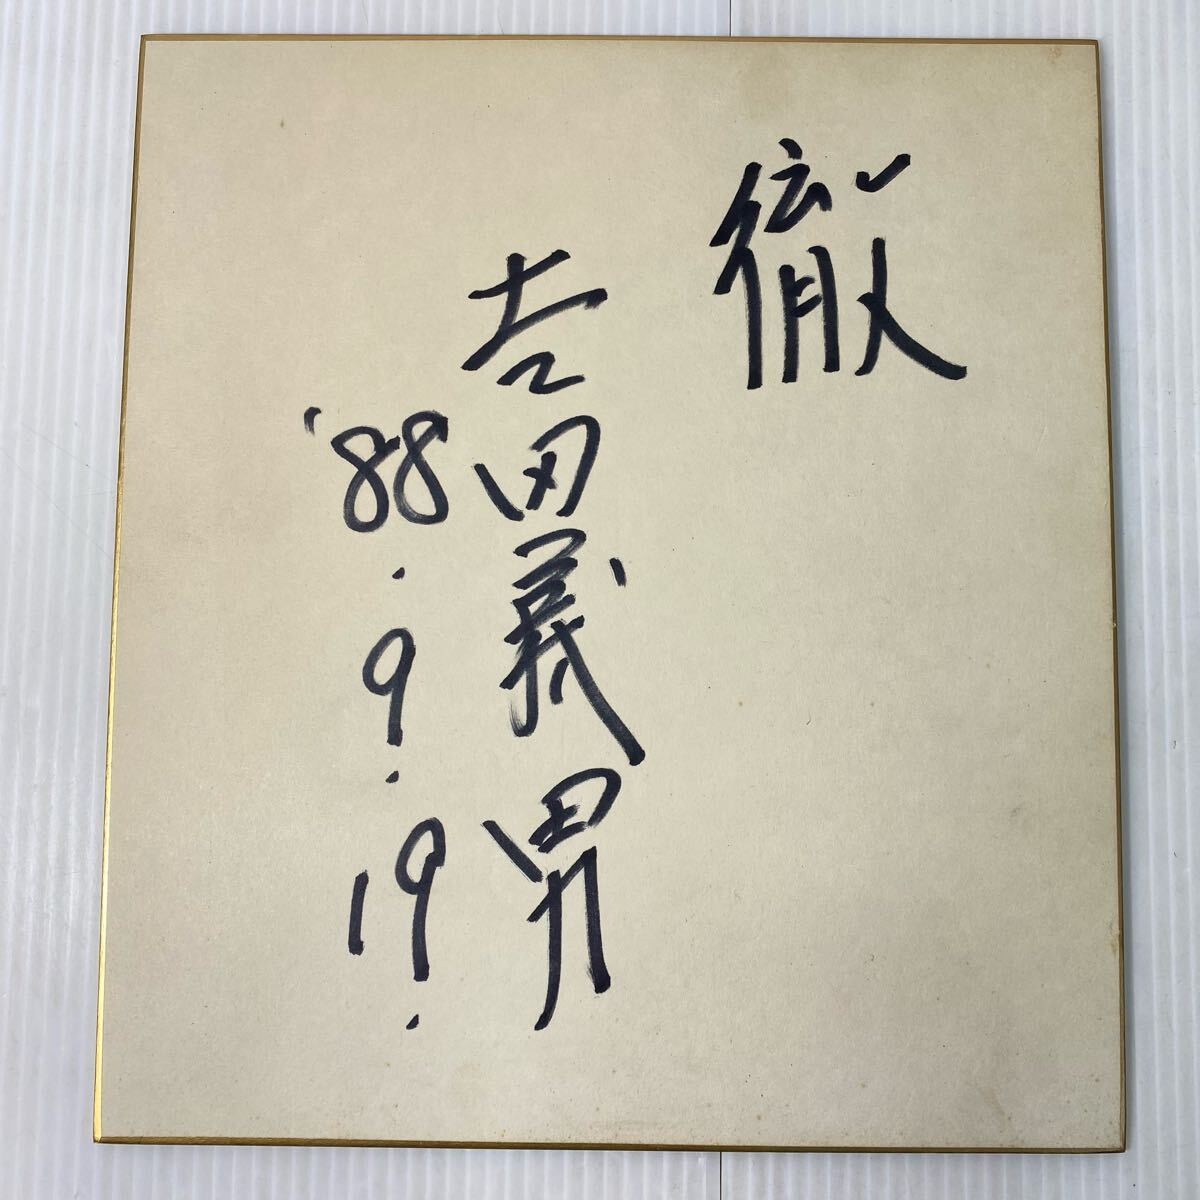 徹
吉田義男
'88.9.19.